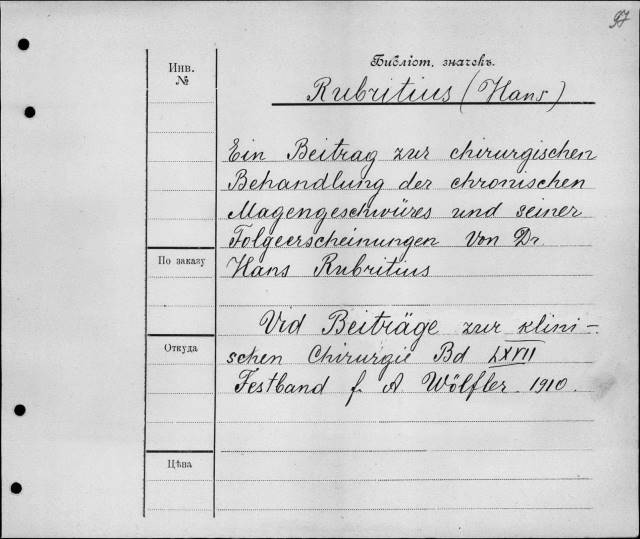 97
Библіот. значекъ.
Инв.
№
Rubritius (Hans)
Ein Beitrag zur chirurgischen
Behandlung der chronischen
Magengeschwüres und seiner
Folgeerscheinungen Von Dr.
По заказу
Hans Rubritius
Vid Beiträge zur klini-
Откуда
schen Chirurgie Bd LXVII
Festband f. A Wölfler 1910.
Цѣна